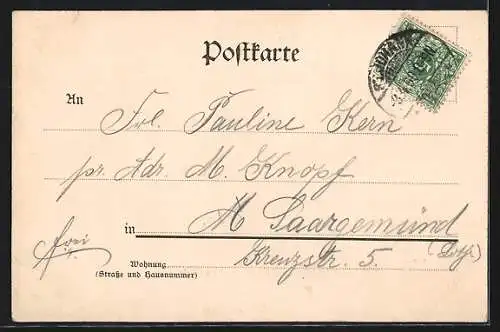 Postkarte
An Frl. Pauline Kern
pr. Adr. M. Knopf
in Saargemünd
frei Kreuzstr. 5. (Lothr.)
Wohnung
(Straße und Hausnummer)